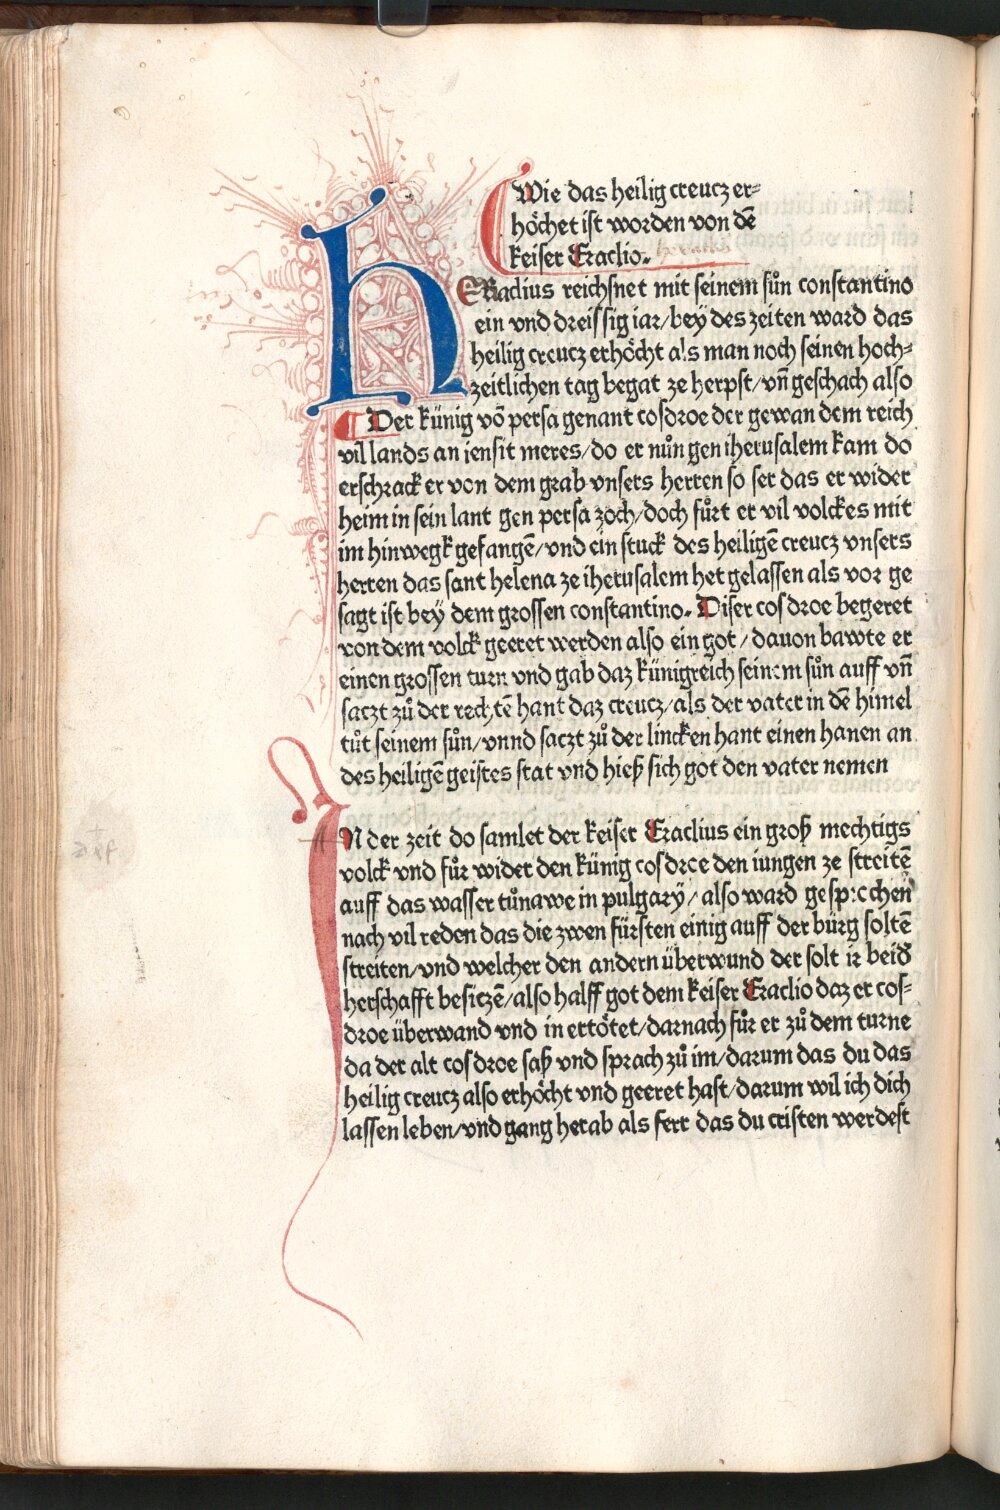 Wie das heilig creucz er⸗
höchet ist worden von dē
keiser Eraclio.
HERaclius reichsnet mit seinem sůn constantino
ein vnd dreissig iar/bey des zeiten ward das
heilig creucz erhöcht als man noch seinen hoch⸗
zeitlichen tag begat ze herpst/vn̄ geschach also
Der künig vō persa genant cosdroe der gewan dem reich
vil lands an iensit meres/do er nůn gen iherusalem kam do
erschrack er von dem grab vnsers herren so ser das er wider
heim in sein lant gen persa zoch/doch fůrt er vil volckes mit
im hinwegk gefangē/vnd ein stuck des heiligē creucz vnsers
herren das sant helena ze iherusalem het gelassen als vor ge
sagt ist bey dem grossen constantino. Diser cosdroe begeret
von dem volck geeret werden also ein got/dauon bawte er
einen grossen turn vnd gab daz künigreich seinem sůn auff vn̄
saczt zů der rechtē hant daz creucz/als der vater in dē himel
tůt seinem sůn/vnnd saczt zů der lincken hant einen hanen an
des heiligē geistes stat vnd hieß sich got den vater nemen
IN der zeit do samlet der keiser Eraclius ein groß mechtigs
volck vnd fůr wider den künig cosdroe den iungen ze streitē
auff das wasser tůnawe in pulgary/also ward gesprochen
nach vil reden das die zwen fürsten einig auff der bürg soltē
streiten/vnd welcher den andern überwund der solt ir beid
herschafft besiczē/also halff got dem keiser Eraclio daz er cos⸗
droe überwand vnd in ertötet/darnach fůr er zů dem turne
da der alt cosdroe saß vnd sprach zů im/darum das du das
heilig creucz also erhöcht vnd geeret hast/darum wil ich dich
lassen leben/vnd gang herab als ferr das du cristen werdest